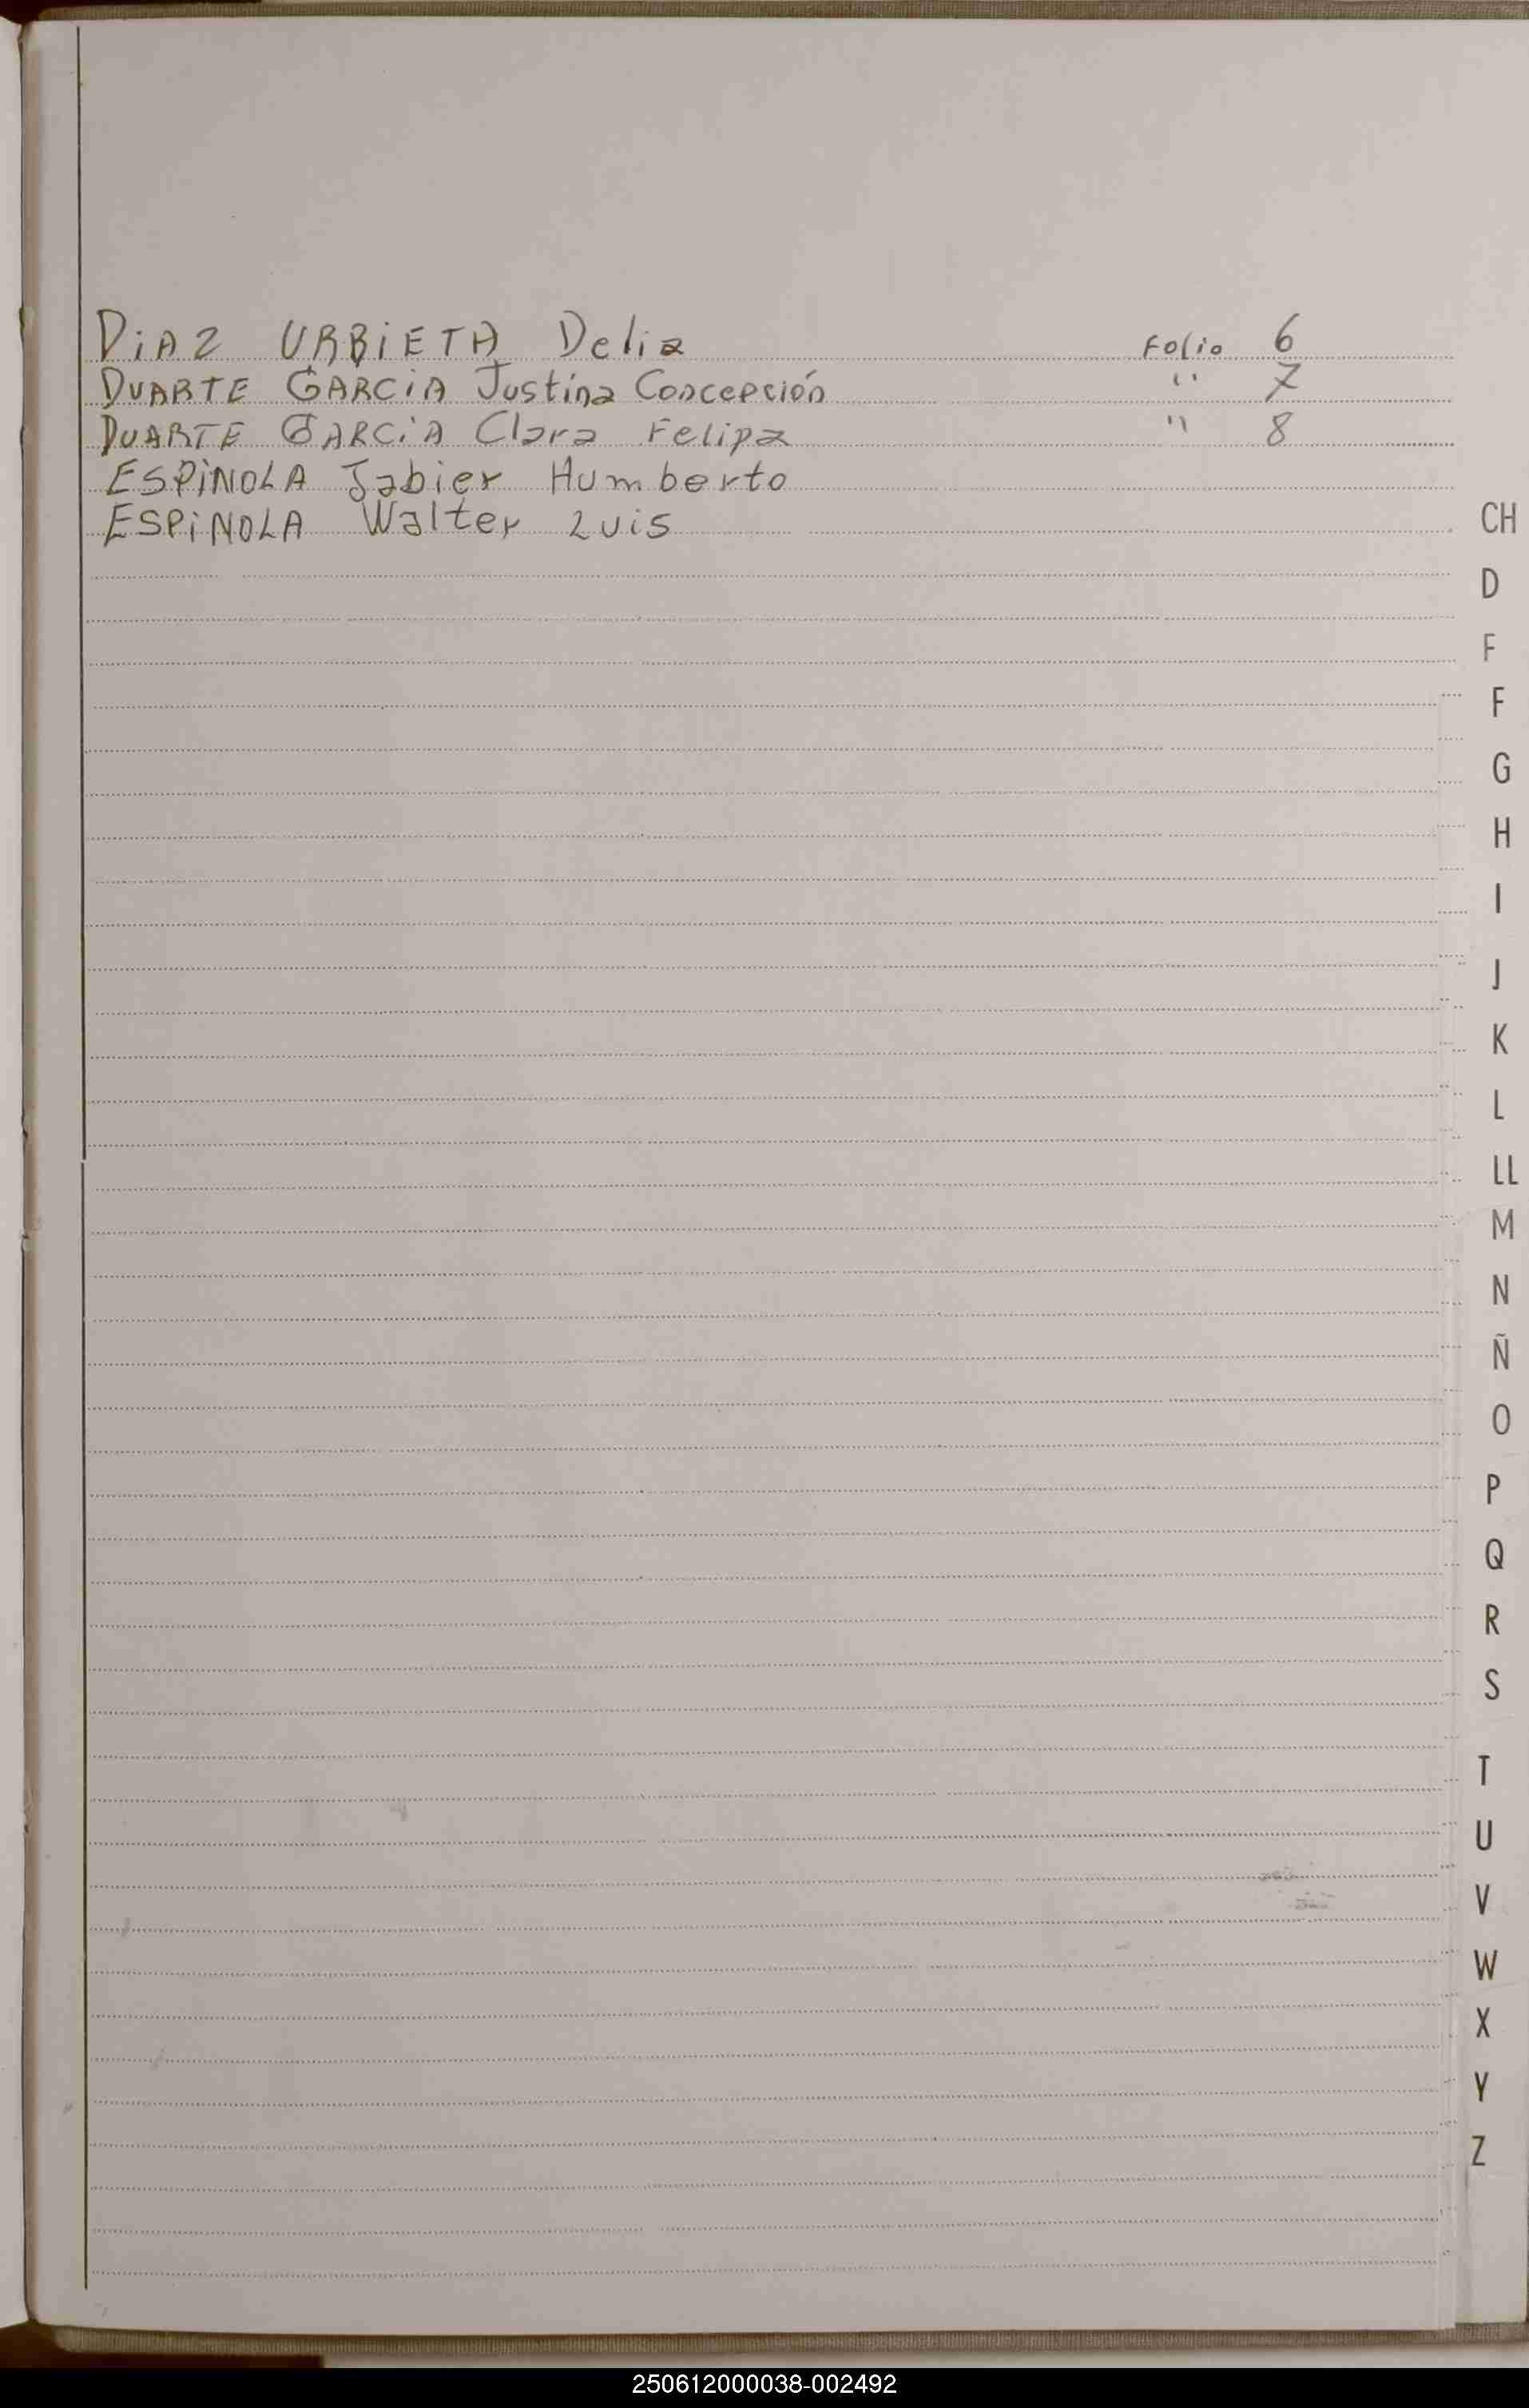 DiAZ URBiETA Delia Folio 6
DUARTE GARCiA Justina Concepción " 7
DUARTE GARCiA Clara Felipa " 8
ESPiNOLA Jabier Humberto
ESPiNOLA Walter Luis
CH
D
F
F
G
H
I
J
K
L
LL
M
N
Ñ
O
P
Q
R
S
T
U
V
W
X
Y
Z
250612000038-002492